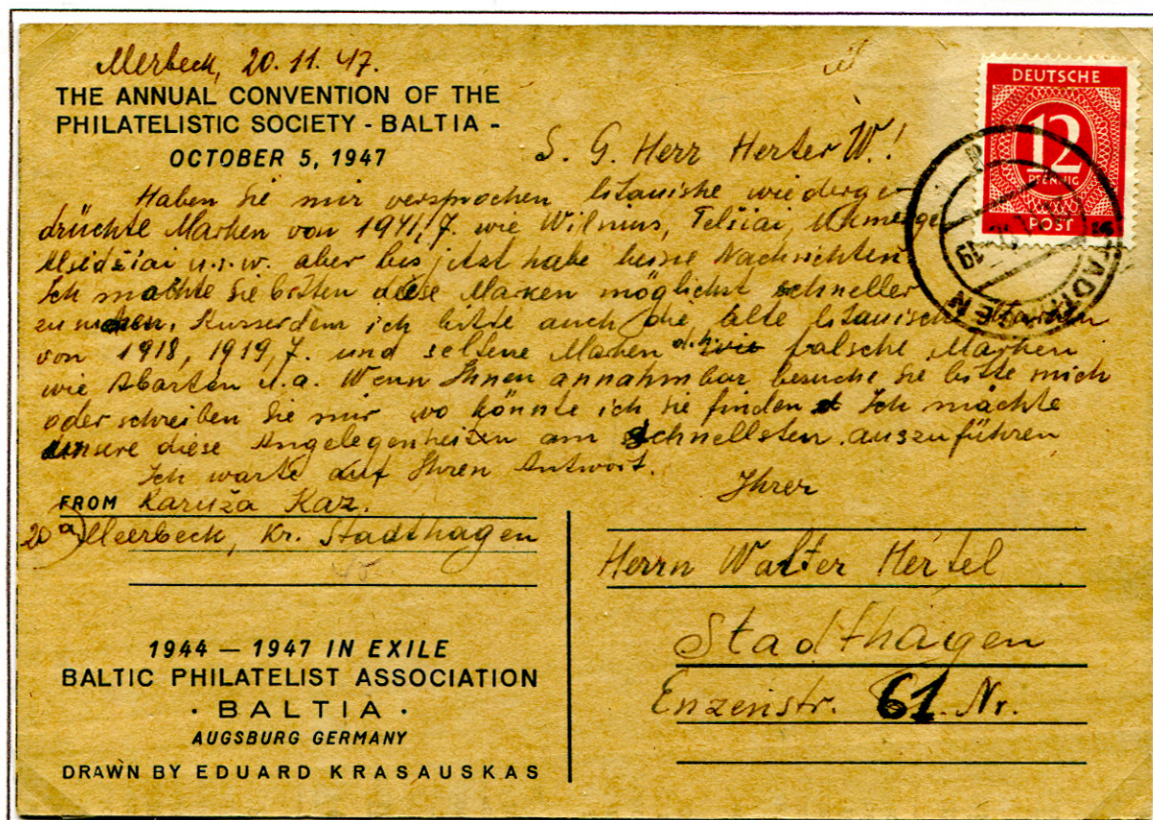 Merbeck, 20. 11. 47.
THE ANNUAL CONVENTION OF THE
PHILATELISTIC SOCIETY - BALTIA -
OCTOBER 5, 1947
DEUTSCHE
12
PFENNIG
POST
S. G. Herr Herter W.!
Haben Sie mir versprochen litauishe wiederge-
drüchte Marken von 1941, wie Wilnius, Telšiai, Ukmerge
u.s.w. aber bis jetzt habe keine Nachrichten
Ich mächte Sie bitten diese Marken möglichst schneller
zu Ausserdem ich bitte auch die alte litauische Marken
von 1918, 1919, und seltene Marken d.h. falsche Marken
wie Abarten u.a. Wenn Ihnen annahmbar besuche Sie bitte mich
oder schreiben Sie mir wo könnte ich Sie finden Ich mächte
unsere diese Angelegenheiten am schnellsten auszuführen
Ich warte auf Ihren Antwort.
Ihrer
FROM Karuža Kaz.
20a) Meerbeck, Kr. Stadthagen
Herrn Walter Hertel
Stadthagen
Enzenstr. 61. Nr.
1944 — 1947 IN EXILE
BALTIC PHILATELIST ASSOCIATION
· BALTIA ·
AUGSBURG GERMANY
DRAWN BY EDUARD KRASAUSKAS